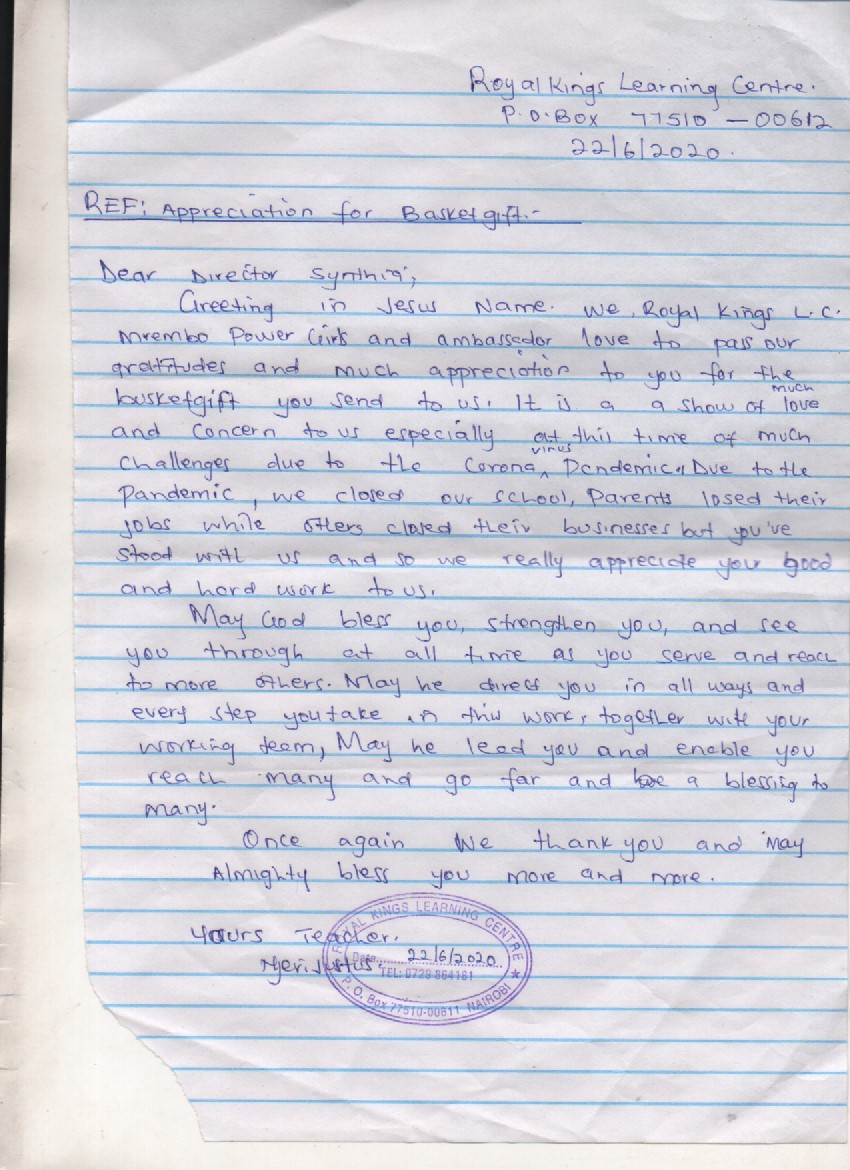 Royal Kings Learning Centre.
P.O.Box 77510 – 00612
22/6/2020.
REF: Appreciation for Basketgift.-
Dear Director Synthia;
Greeting in Jesus Name. We, Royal Kings L.C.
Mrembo Power Girls and ambassador love to pass our
gratitudes and much appreciation to you for the
busketgift you send to us. It is a a show of much love
and concern to us especially at this time of much
challenges due to the Corona virus Pandemic. Due to the
Pandemic, we closed our school, Parents losed their
jobs while others closed their businesses but you've
stood with us and so we really appreciate you good
and hard work to us.
May God bless you, strengthen you, and see
you through at all time as you serve and reach
to more others. May he direct you in all ways and
every step you take in this work, together with your
working team, May he lead you and enable you
reach many and go far and be a blessing to
many.
Once again We thank you and May
Almighty bless you more and more.
Yours Teacher.
Njeri Justus.
ROYAL KINGS LEARNING CENTRE
Date 22/6/2020
TEL: 0729 864161
P. O. Box 77510-00611 NAIROBI